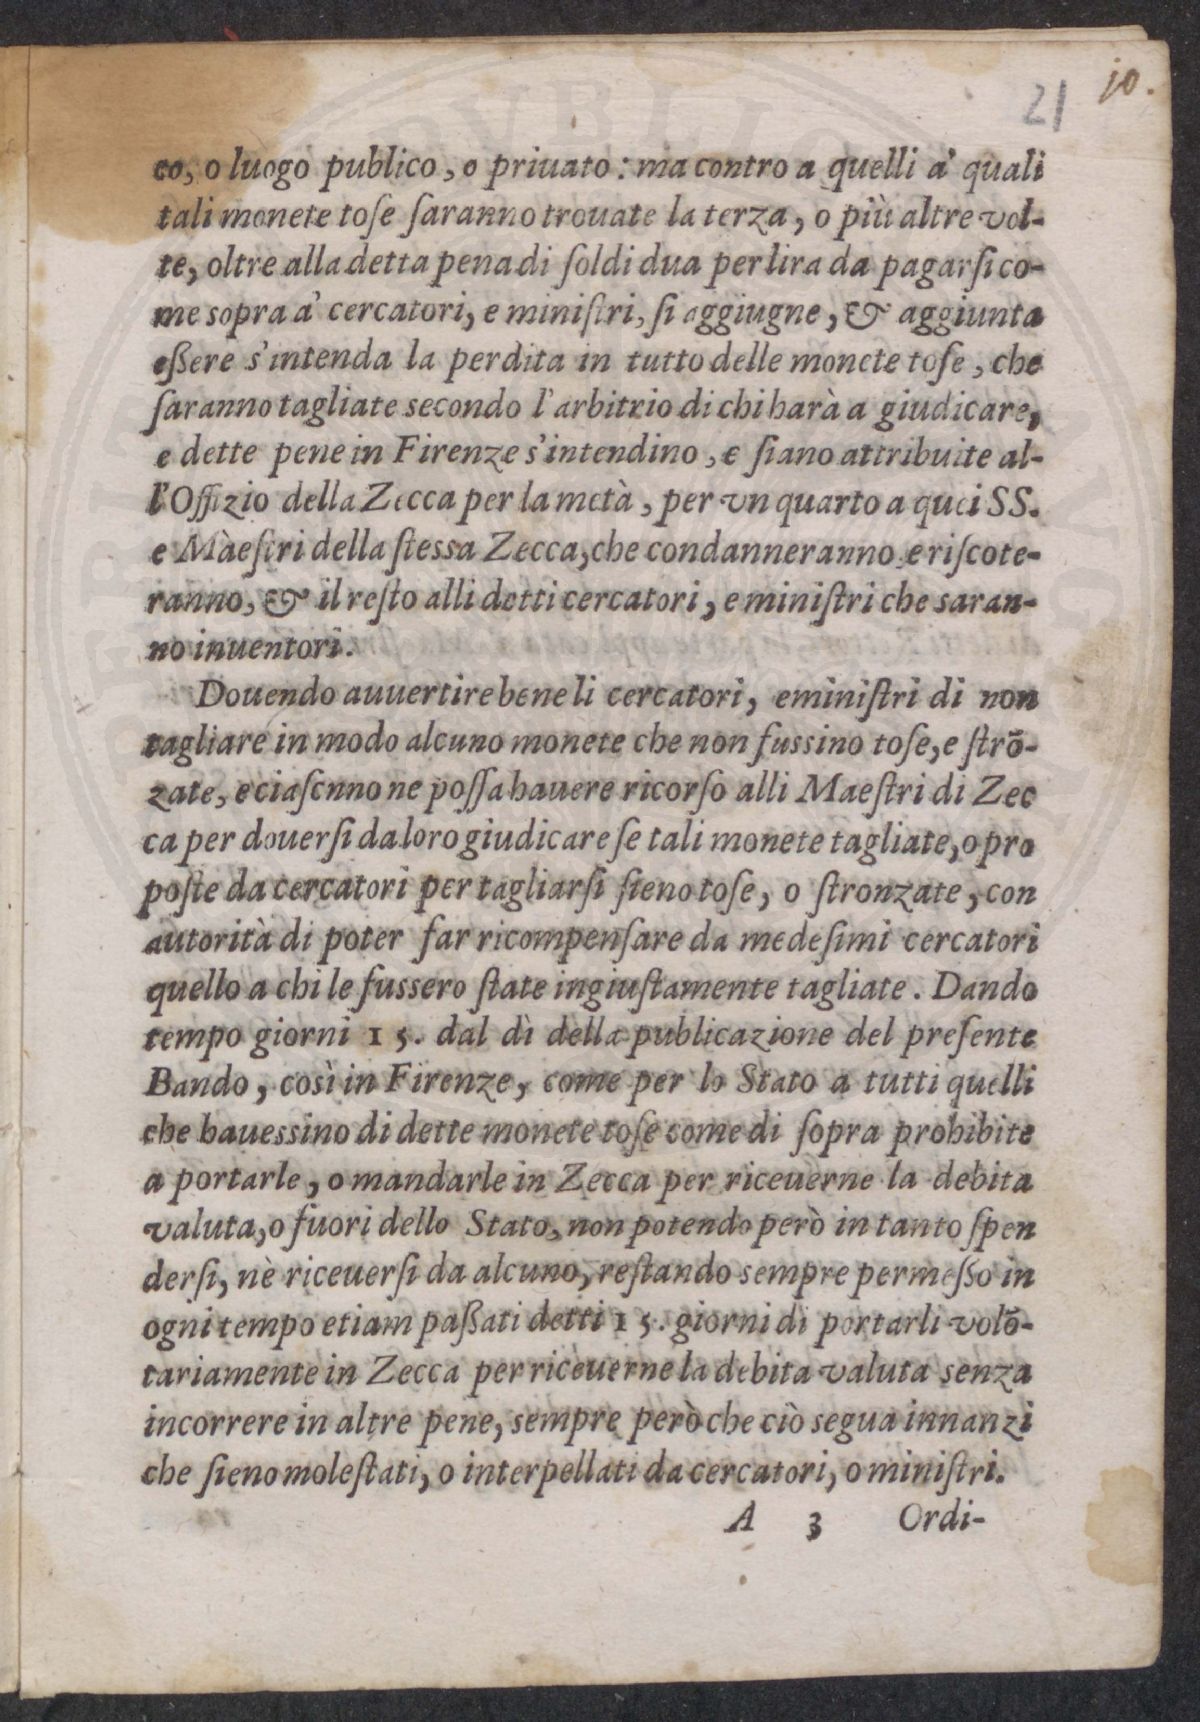 21 10.
co, o luogo publico, o priuato: ma contro a quelli a' quali
tali monete toſe ſaranno trouate la terza, o più altre vol-
te, oltre alla detta pena di ſoldi dua per lira da pagarſi co-
me sopra a' cercatori, e miniſtri, ſi aggiugne, & aggiunta
eßere s'intenda la perdita in tutto delle monete toſe, che
ſaranno tagliate secondo l'arbitrio di chi harà a giudicare,
e dette pene in Firenze s'intendino, e ſiano attribuite al-
l'Offizio della Zecca per la metà, per vn quarto a quei SS.
e Màeſtri della ſtessa Zecca, che condanneranno e riſcote-
ranno, & il reſto alli detti cercatori, e miniſtri che saran-
no inuentori.
Douendo auuertire bene li cercatori, e miniſtri di non
tagliare in modo alcuno monete che non fussino toſe, e ſtrō-
zate, e ciaſcnno ne poſſa hauere ricorſo alli Maeſtri di Zec
ca per douerſi da loro giudicare ſe tali monete tagliate, o pro
poſte da cercatori per tagliarſi ſieno toſe, o ſtronzate, con
autorità di poter far ricompenſare da medeſimi cercatori
quello a chi le fussero ſtate ingiuſtamente tagliate. Dando
tempo giorni 15. dal dì della publicazione del preſente
Bando, così in Firenze, come per lo Stato a tutti quelli
che hauessino di dette monete toſe come di ſopra prohibite
a portarle, o mandarle in Zecca per riceuerne la debita
valuta, o fuori dello Stato, non potendo però in tanto ſpen
derſi, nè riceuerſi da alcuno, reſtando sempre permeßo in
ogni tempo etiam paßati detti 15. giorni di portarli volō-
tariamente in Zecca per riceuerne la debita valuta senza
incorrere in altre pene, sempre però che ciò segua innanzi
che ſieno moleſtati, o interpellati da cercatori, o miniſtri.
A 3 Ordi-